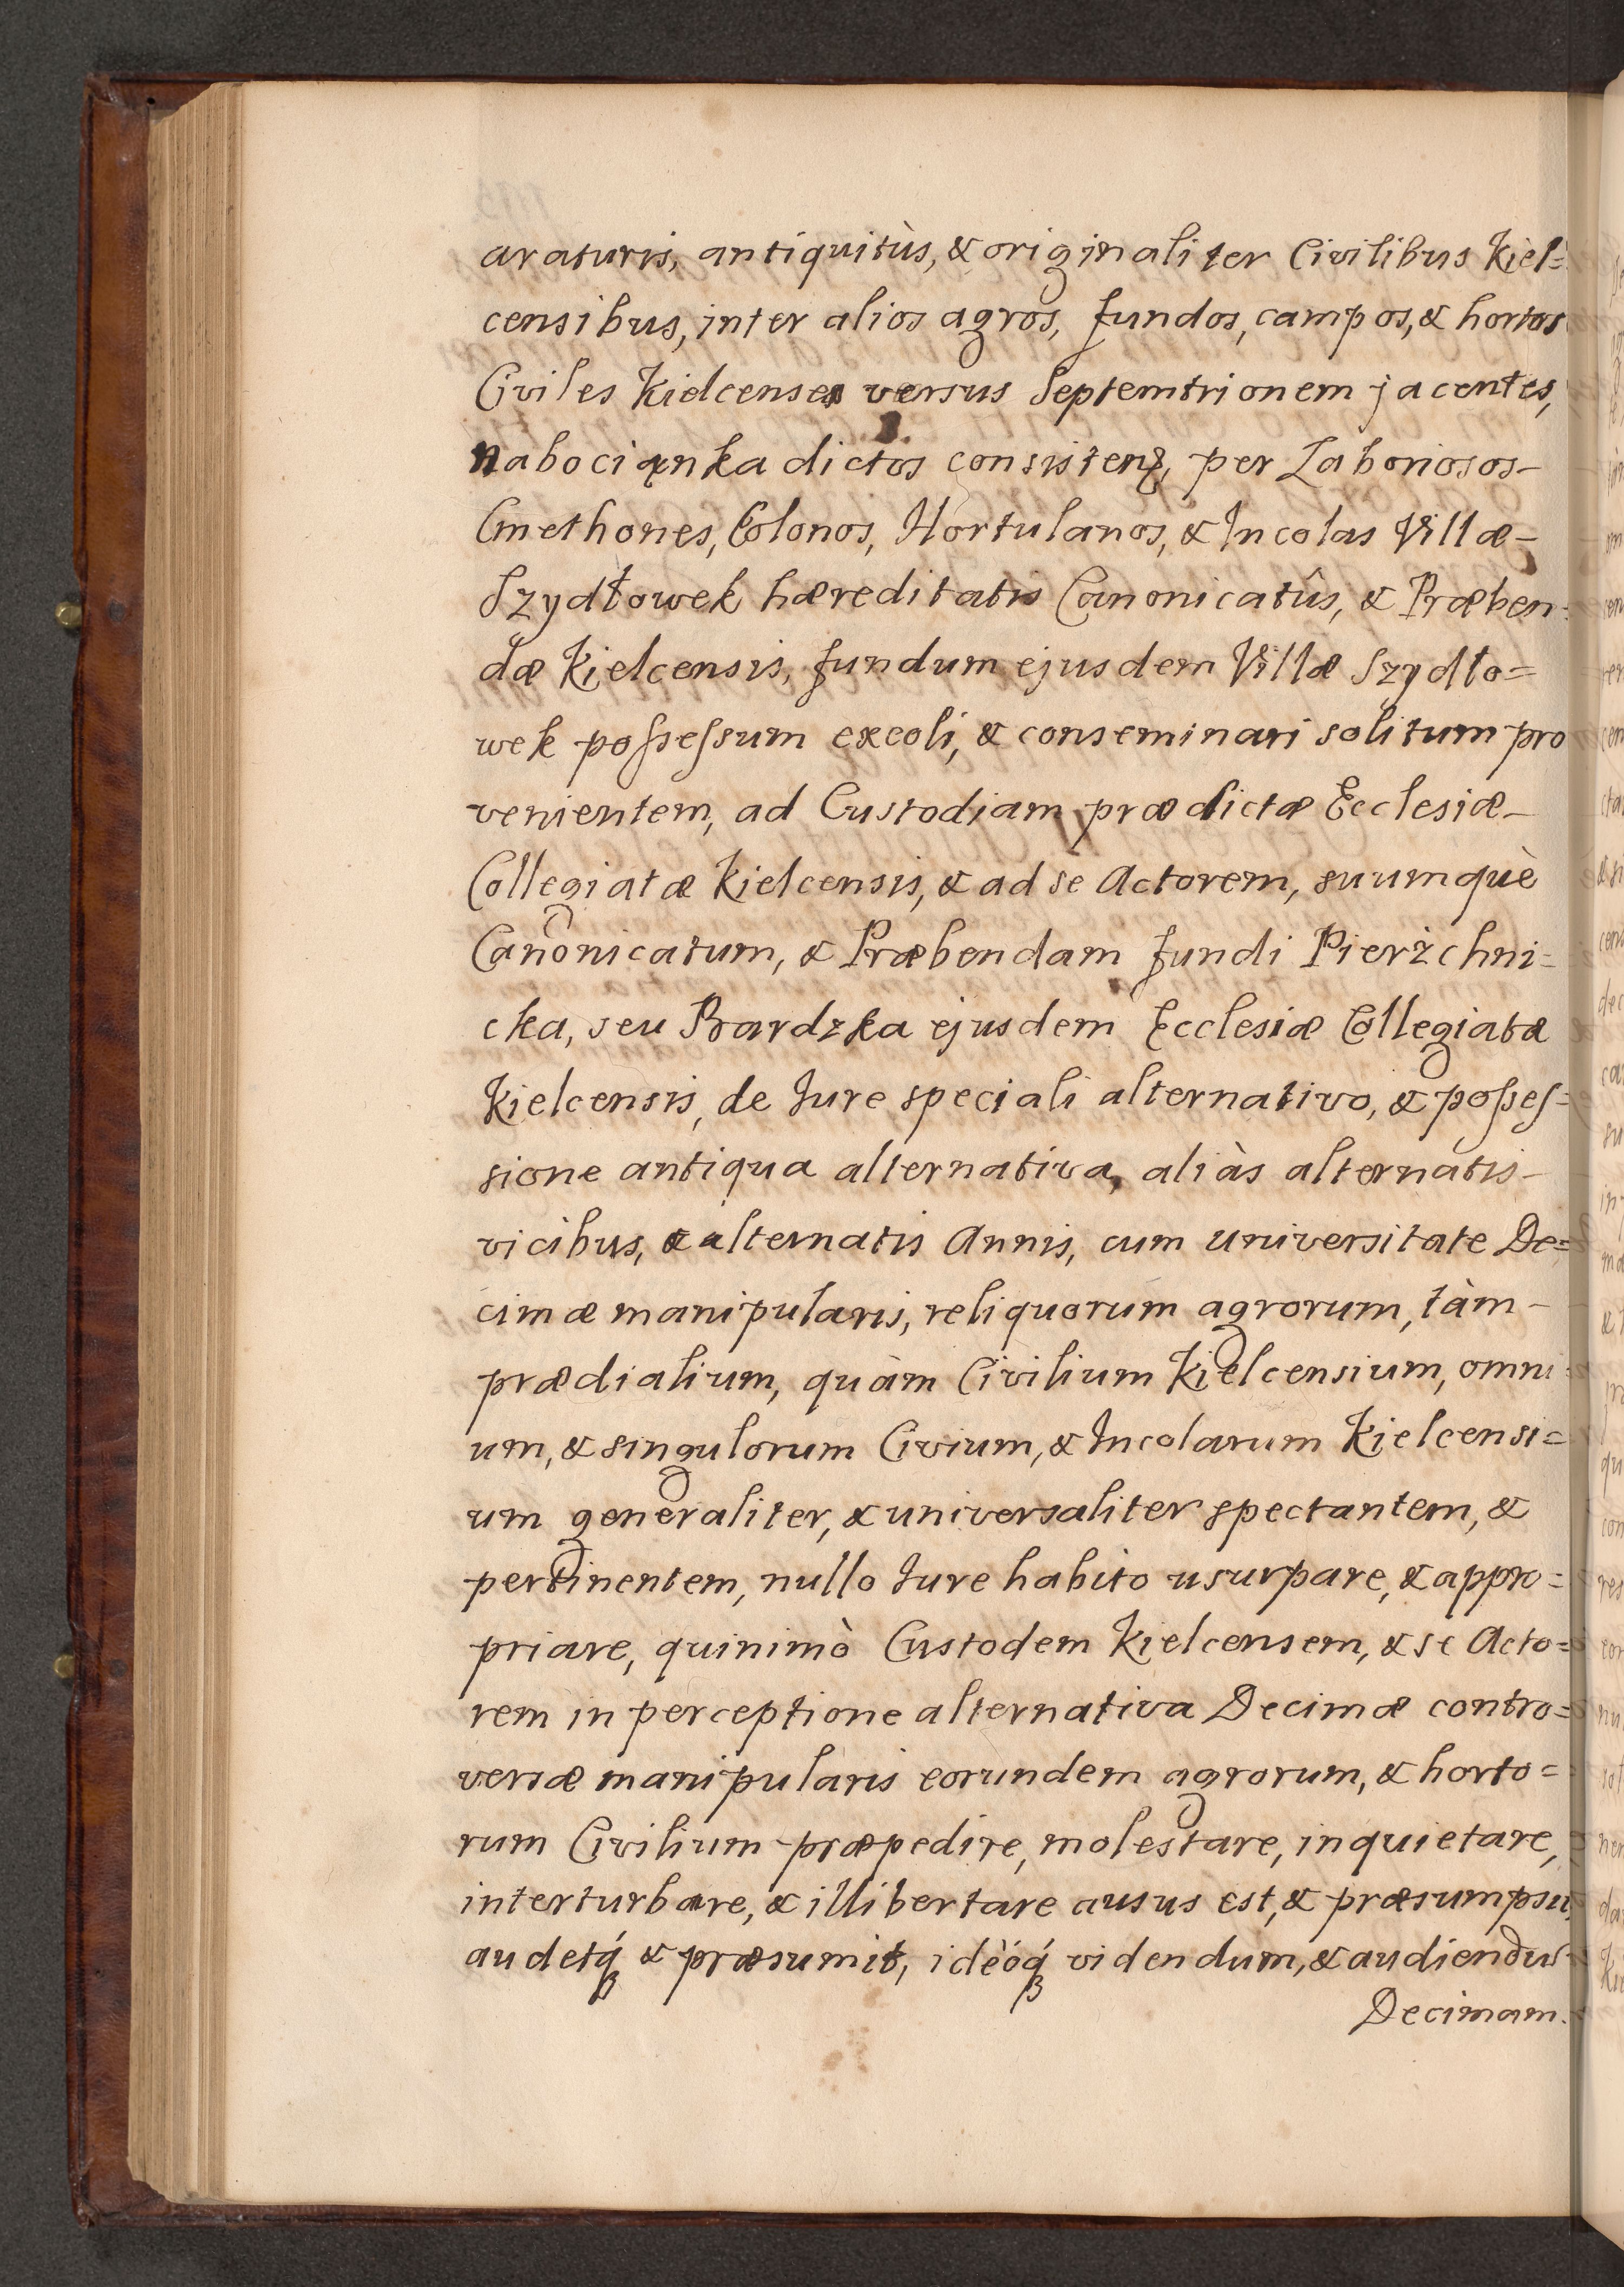 araturis, antiquitùs, & originaliter Civilibus Kiel=
censibus, inter alios agros, fundos, campos, & hortos
Civiles Kielcenses versus Septemtrionem jacentes,
nabocianka dictos consisten, per Laboriosos-
Cmethones, Colonos, Hortulanos, & Incolas Villæ-
Szydłowek hæreditatis Canonicatûs, & Præben=
dæ Kielcensis, fundum ejusdem Villæ Szydło=
wek poſseſsum excoli, & conseminari solitum pro
venientem, ad Custodiam prædictæ Ecclesiæ-
Collegiatæ Kielcensis, & ad se Actorem, suumquè
Canonicatum, & Præbendam fundi Pierżchni=
cka, seu Bardzka ejusdem Ecclesiæ Collegiatæ
Kielcensis, de Jure speciali alternativo, & poſseſ=
sione antiqua alternativa, aliàs alternatis-
vicibus, & alternatis Annis, cum universitate De=
cimæ manipularis, reliquorum agrorum, tàm-
prædialium, quàm Civilium Kielcensium, omni=
um, & singulorum Civium, & Incolarum Kielcensi=
um generaliter, & universaliter spectantem, &
pertinentem, nullo Jure habito usurpare, & appro=
priare, quinimò Custodem Kielcensem, & se Acto=
rem in perceptione alternativa Decimæ contro=
versæ manipularis eorundem agrorum, & horto=
rum Civilium præpedire, molestare, inquietare,
interturbare, & illibertare ausus est, & præsumpsit,
audetq́ & præsumit, ideòq́ videndum, & audiendũ
Decimam.